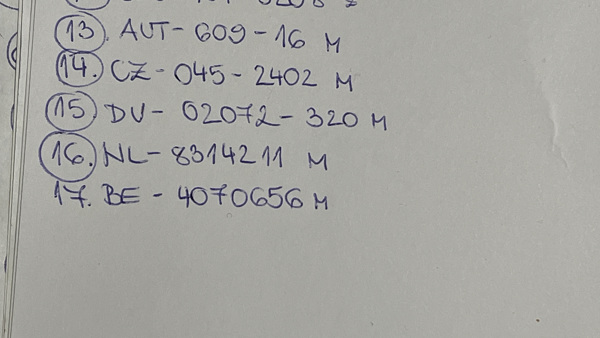 13. AUT - 609 - 16 M
14. CZ - 045 - 2402 M
15 DV - 02072 - 320 M
16. NL - 8314211 M
17. BE - 4070656 M